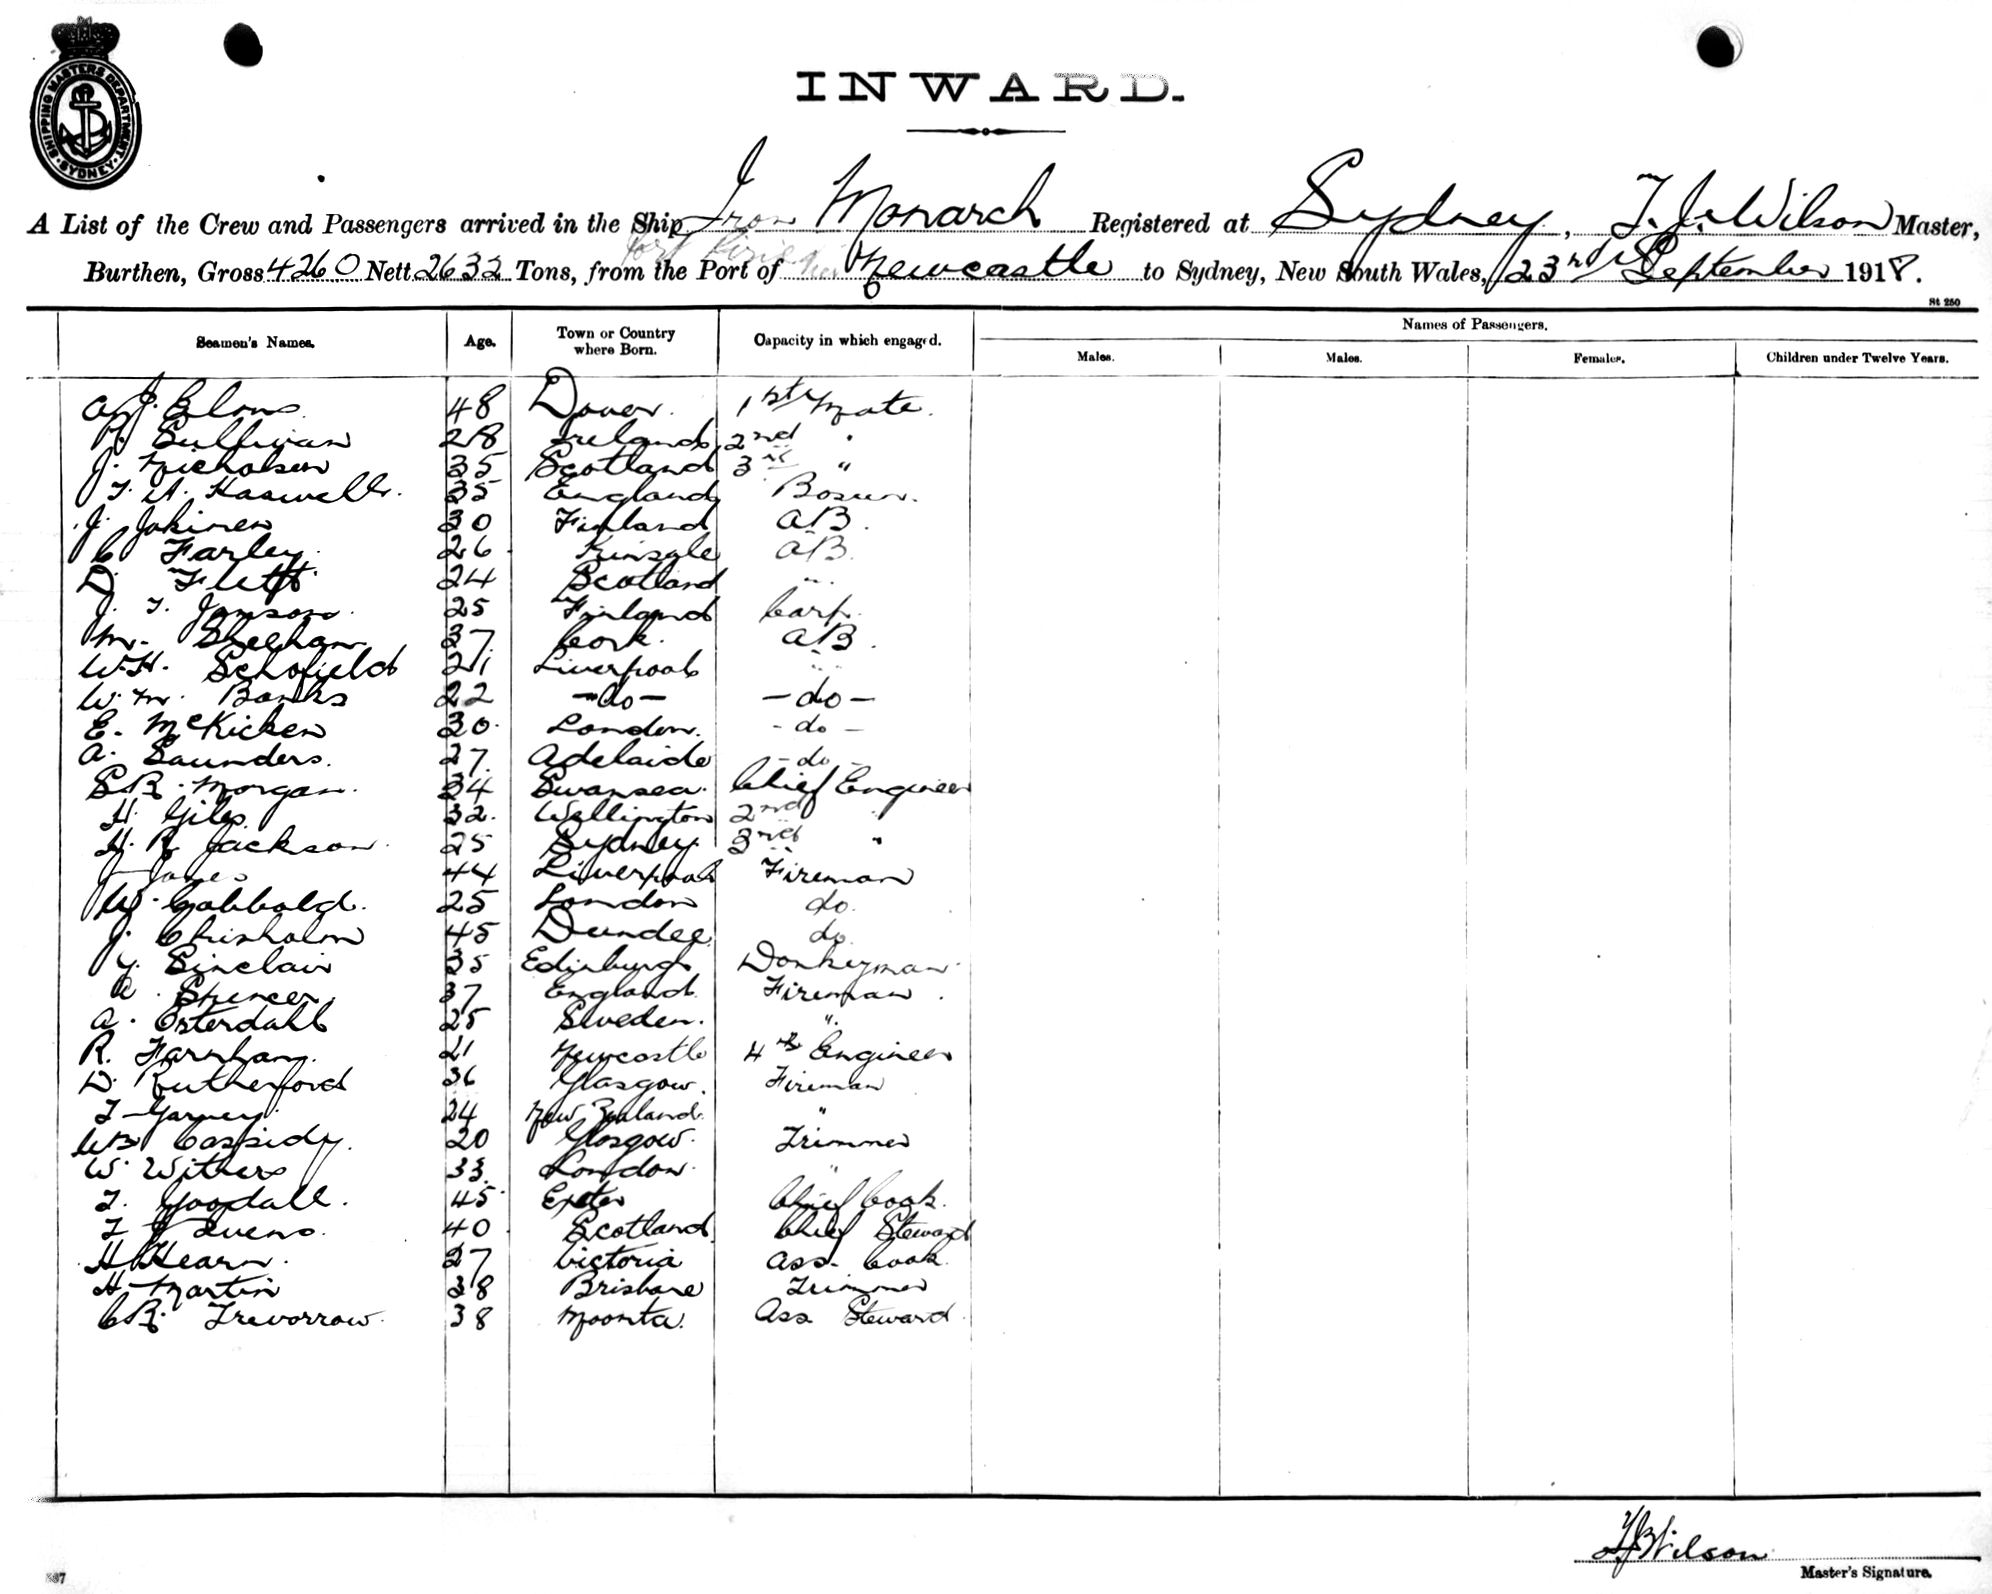 SHIPPING MASTERS DEPARTMENT · SYDNEY ·
INWARD.
A List of the Crew and Passengers arrived in the Ship Iron Monarch Registered at Sydney, T. J. Wilson Master,
Port Pirie via
Burthen, Gross 4260 Nett 2632 Tons, from the Port of Newcastle to Sydney, New South Wales, 23rd September 1918.
St 250
Seamen's Names. Age. Town or Country where Born. Capacity in which engaged. Names of Passengers.
Males. Males. Females. Children under Twelve Years.
A. J. 48 Dover. 1st Mate.
Sullivan 28 Ireland 2nd "
J. Nicholson 35 Scotland 3rd "
T. A. Haswell. 35 England Bosun.
J. Jokinen 30 Finland AB.
C Farley 26 Kinsale AB.
D. Flett 24 Scotland "
J. T. Jonsson. 25 Finland Carp.
M. Sheehan 37 Cork. AB.
W. H. Schofield 21 Liverpool "
W. M. Banks 22 -do- -do-
E. McKicken 30 London. -do-
A. Saunders. 27 Adelaide -do-
S R. Morgan. 34 Swansea. Chief Engineer
H. Giles 32. Wellington 2nd "
H. R Jackson 25 Sydney 3rd "
J Jones 44 Liverpool Fireman
W. Cobbold. 25 London do.
J. Chisholm 45 Dundee do.
Y. Sinclair 35 Edinburgh Donkeyman
A. Spencer 37 England Fireman.
A. Osterdahl 25 Sweden. "
R. Farnham. 21 Newcastle 4th Engineer
D. Rutherford 36 Glasgow. Fireman
T Garvey 24 New Zealand. "
WB Cassidy. 20 Glasgow. Trimmer
W. Withers 33 London. "
T. Goodall. 45 Exeter Chief Cook.
T J Evens. 40 Scotland Chief Steward
H Hearn. 27 Victoria Ass. Cook
H Martin 38 Brisbane Trimmer
C R. Trevorrow. 38 Moonta. Ass Steward
T J Wilson
Master's Signature.